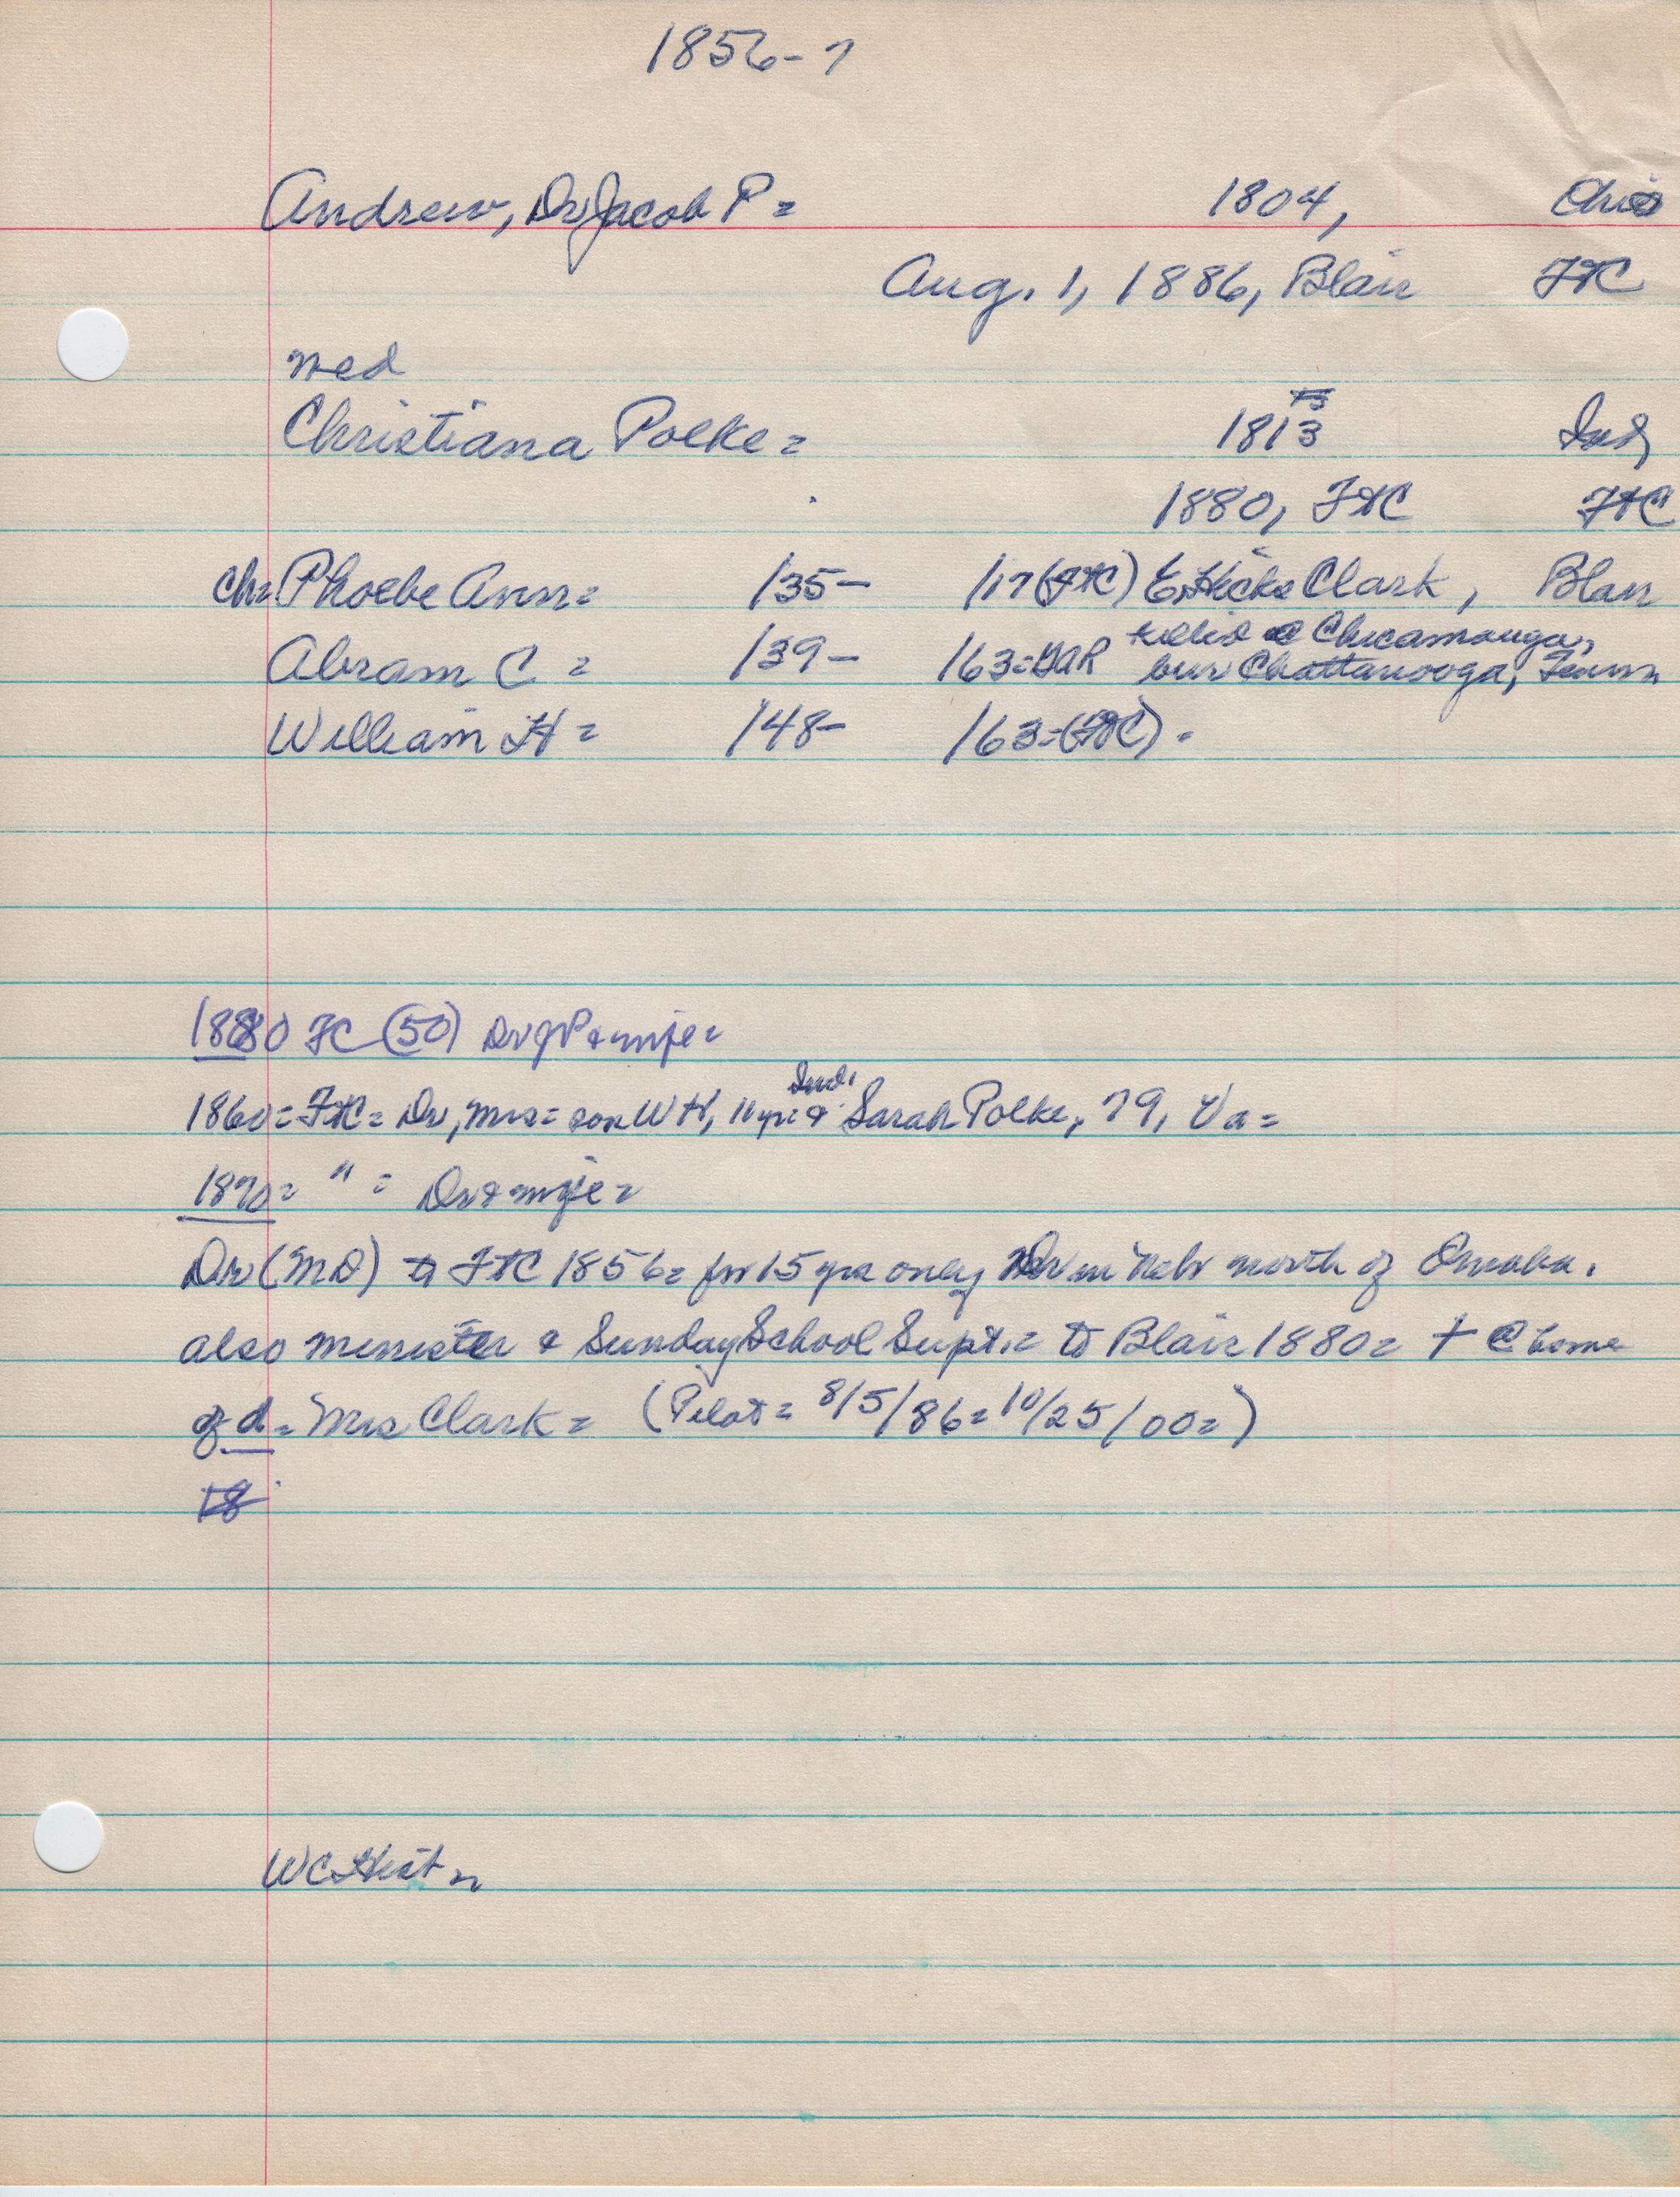 1856-7
Andrew, Dr Jacob P = 1804, Ohio
Aug. 1, 1886, Blair FTC
med
Christiana Polke = 1813 Ind
1880, FTC FTC
ch= Phoebe Ann= /35- /17(FTC) E. Hicks Clark, Blair
killed @ Chicamauga,
Abram C = /39- /63=GAR bur Chattanooga, Tenn
William H = /48- /63=(FTC).
1880 FC (50) Dr JP & wife =
Ind.
1860= FTC = Dr, Mrs= son WH, 11 yrs & Sarah Polke, 79, Va =
1870= " = Dr & wife =
Dr (MD) to FTC 1856= for 15 yrs only Dr in Nebr north of Omaha.
also minister & Sunday School Supt.= to Blair 1880= + @ home
of d= Mrs Clark = (Pilot= 8/5/86=10/25/00=)
18
WC Hist =